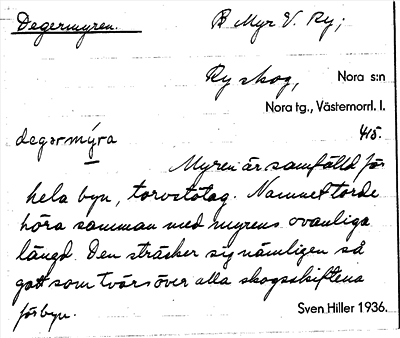 Degermyren. B Myr V. Ry;
Ry skog, Nora s:n
Nora tg., Västernorrl. l.
degərmýra 415.
Myren är samfälld för
hela byn, torvströtag. Namnet torde
höra samman med myrens ovanliga
längd. Den sträcker sig nämligen så
gott som tvärs över alla skogsskiftena
för byn. Sven Hiller 1936.